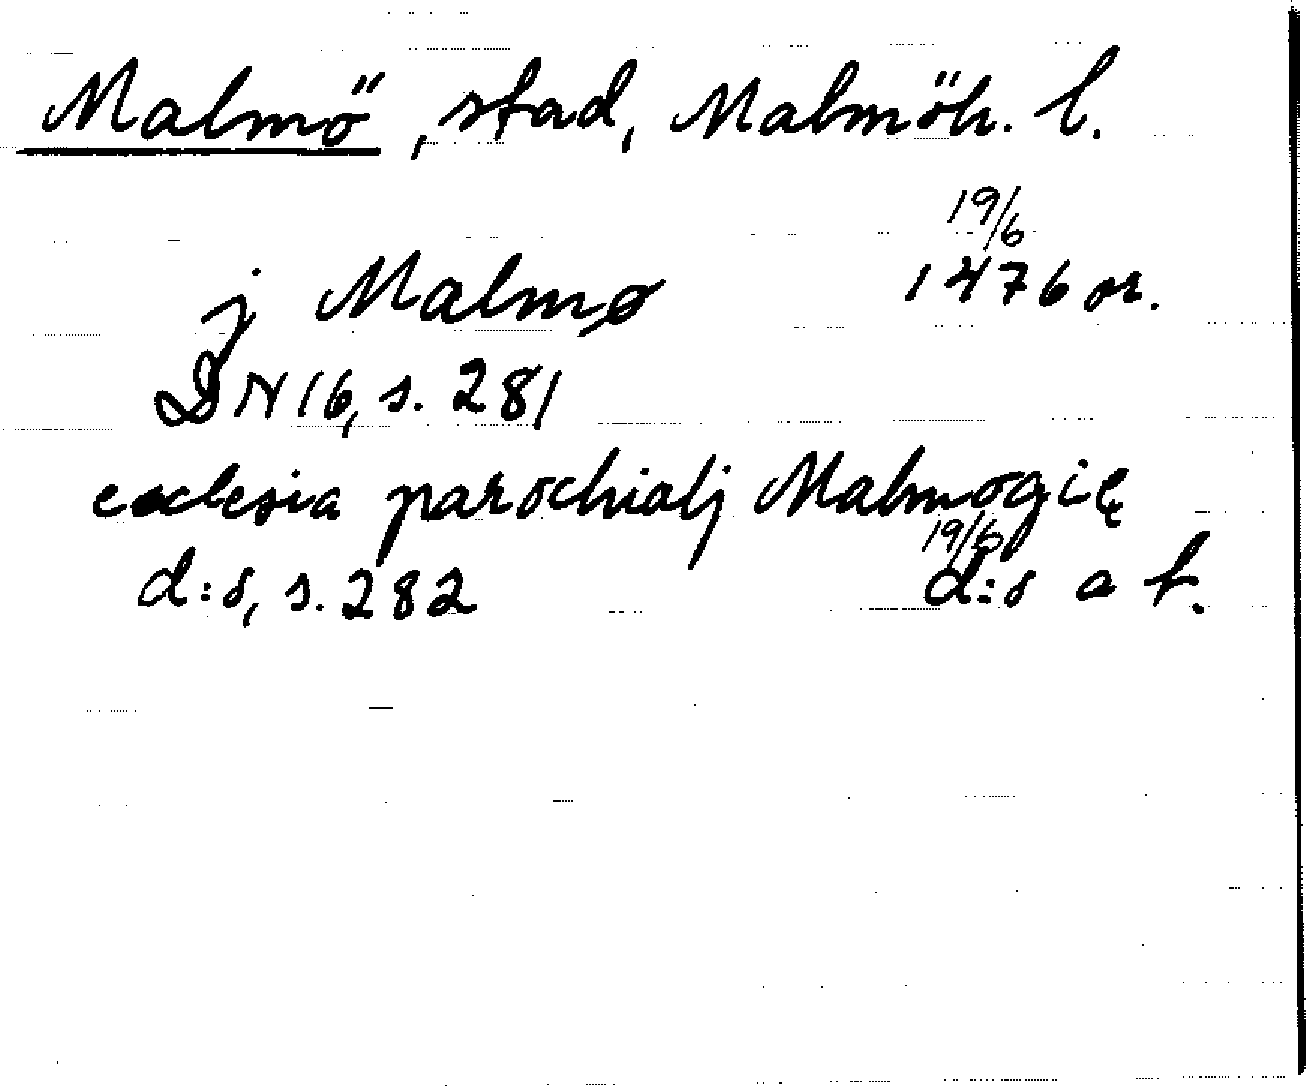 Malmö, stad, Malmöh. l.
19/6
j Malmø 1476 or.
DN 16, s. 281
ecclesia parochialj Malmogię
19/6
d:s, s. 282 d:s a f.